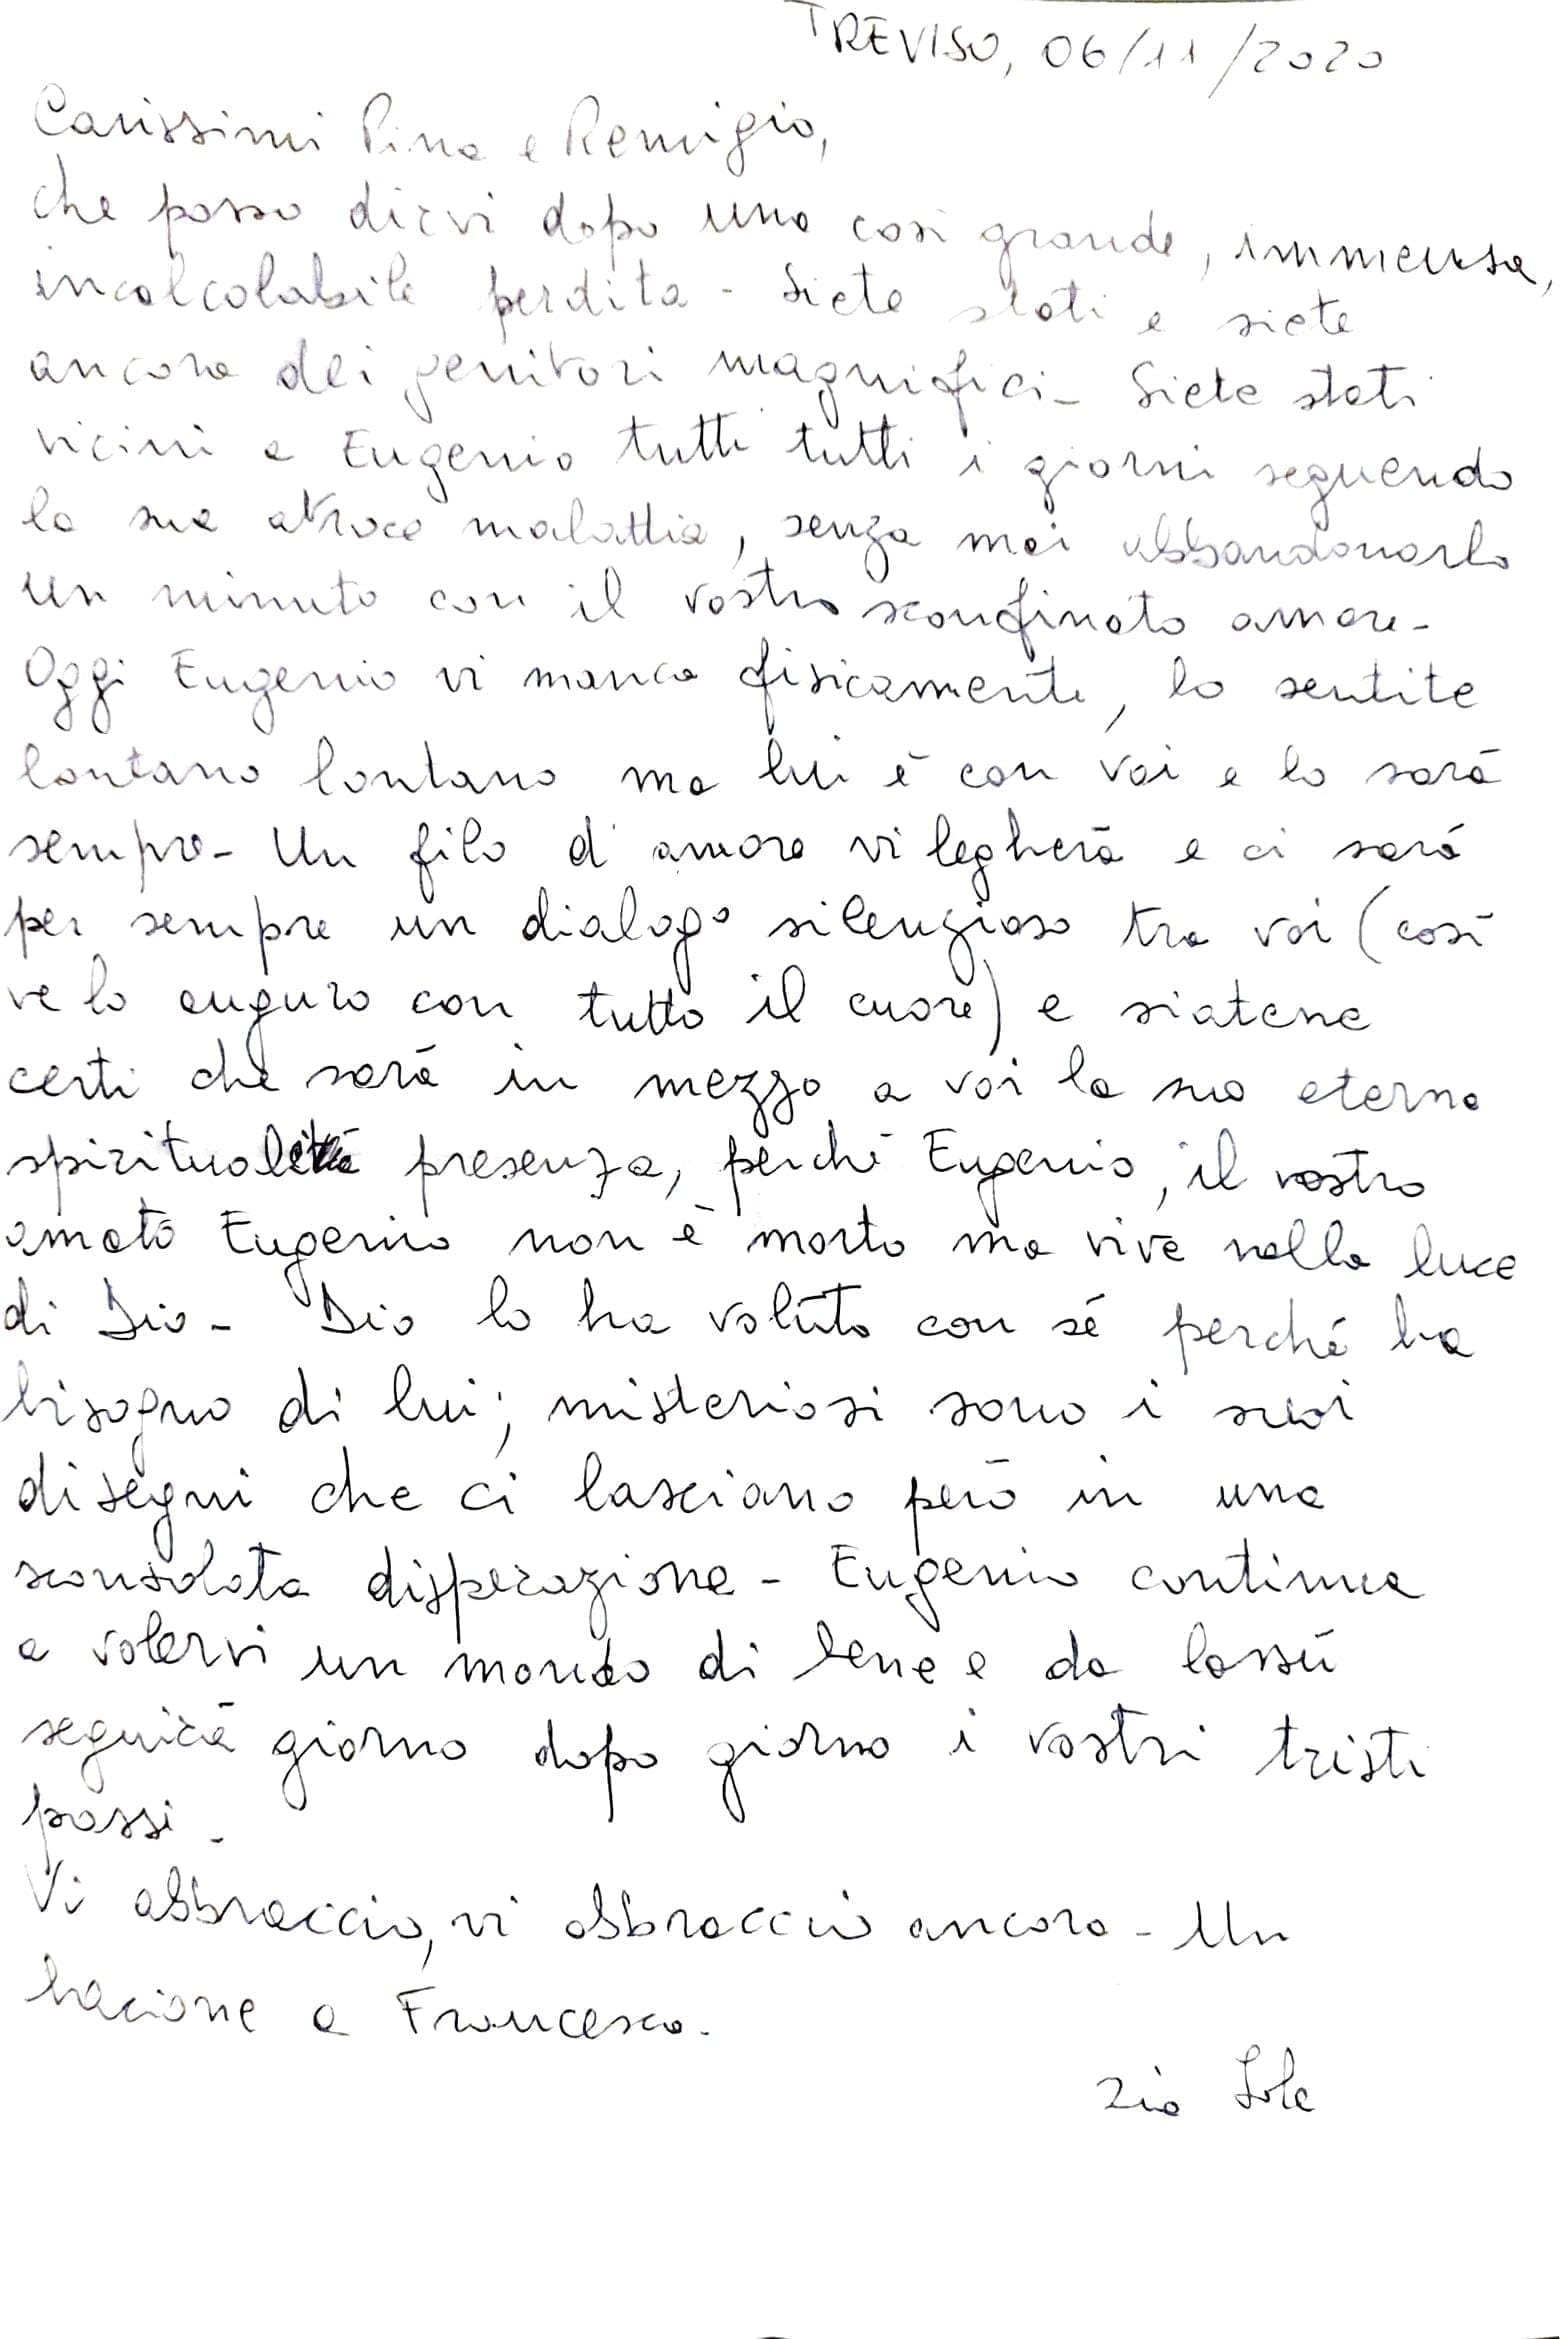 TREVISO, 06/11/2020
Carissimi Pina e Remigio,
che posso dirvi dopo una così grande, immensa,
incalcolabile perdita - Siete stati e siete
ancora dei genitori magnifici - Siete stati
vicini a Eugenio tutti tutti i giorni seguendo
la sua atroce malattia, senza mai abbandonarlo
un minuto con il vostro sconfinato amore -
Oggi Eugenio vi manca fisicamente, lo sentite
lontano lontano ma lui è con voi e lo sarà
sempre - Un filo d'amore vi legherà e ci sarà
per sempre un dialogo silenzioso tra voi (così
ve lo auguro con tutto il cuore) e siatene
certi che sarà in mezzo a voi la sua eterna
presenza, perché Eugenio, il vostro
amato Eugenio non è morto ma vive nella luce
di Dio - Dio lo ha voluto con sé perché ha
bisogno di lui; misteriosi sono i suoi
disegni che ci lasciano però in una
sconsolata disperazione - Eugenio continua
a volervi un mondo di bene e da lassù
seguirà giorno dopo giorno i vostri tristi
passi -
Vi abbraccio, vi abbraccio ancora - Un
bacione a Francesco.
Zia